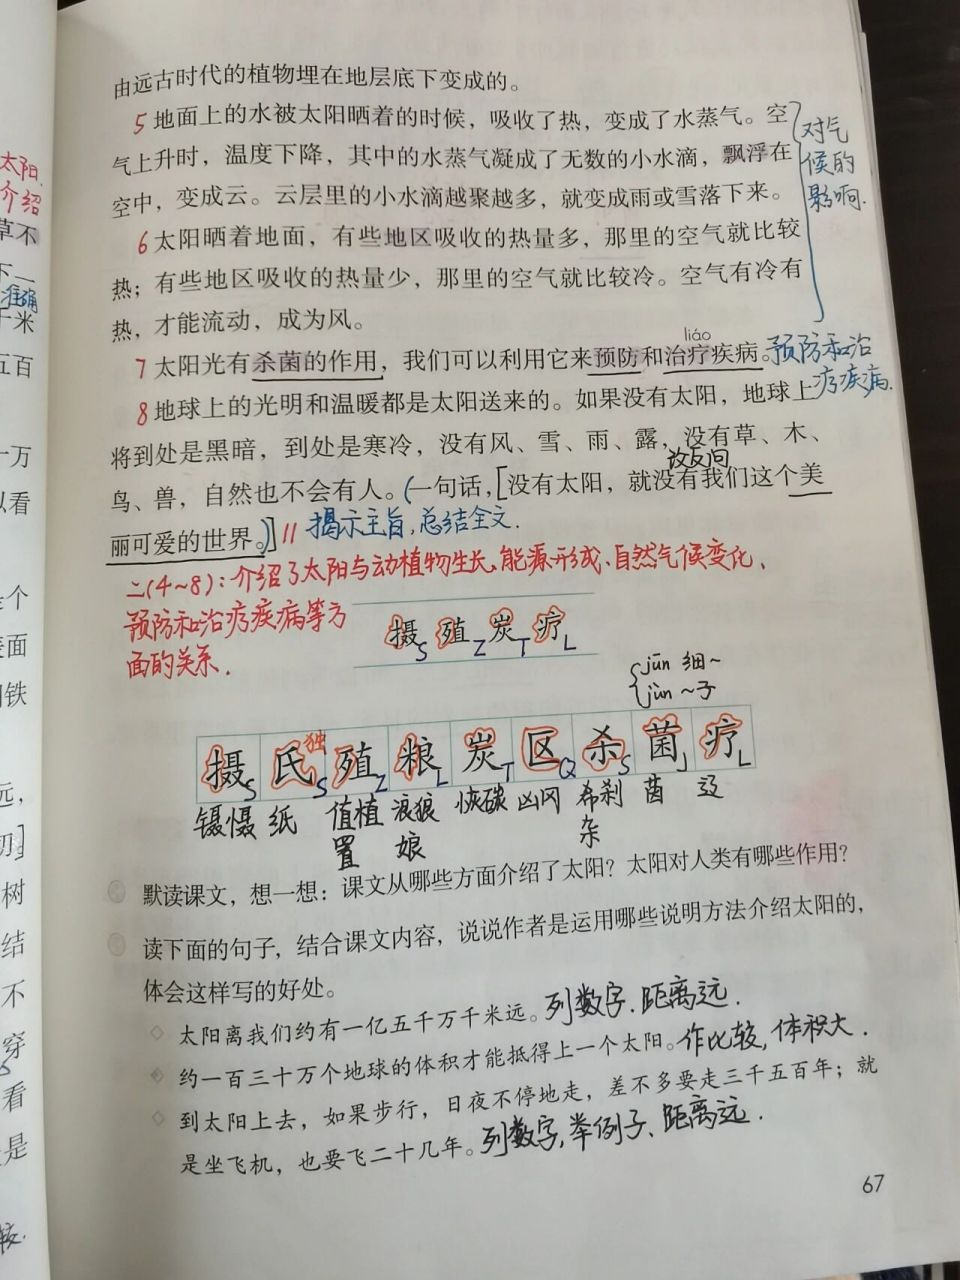 由远古时代的植物埋在地层底下变成的。
5 地面上的水被太阳晒着的时候，吸收了热，变成了水蒸气。空
气上升时，温度下降，其中的水蒸气凝成了无数的小水滴，飘浮在
空中，变成云。云层里的小水滴越聚越多，就变成雨或雪落下来。
对气
候的
影响.
6 太阳晒着地面，有些地区吸收的热量多，那里的空气就比较
热；有些地区吸收的热量少，那里的空气就比较冷。空气有冷有
热，才能流动，成为风。
liáo
7 太阳光有杀菌的作用，我们可以利用它来预防和治疗疾病。预防和治
疗疾病.
8 地球上的光明和温暖都是太阳送来的。如果没有太阳，地球上
将到处是黑暗，到处是寒冷，没有风、雪、雨、露，没有草、木、
改反问
鸟、兽，自然也不会有人。(一句话，[没有太阳，就没有我们这个美
丽可爱的世界。)] // 揭示主旨,总结全文.
二(4~8)：介绍了太阳与动植物生长、能源形成、自然气候变化、
预防和治疗疾病等方
面的关系.
摄S 殖Z 炭T 疗L
jūn 细~
jùn ~子
独
摄S 氏S 殖Z 粮L 炭T 区Q 杀S 菌J 疗L
镊慑 纸 值植 浪狼 恢碳 凶冈 希刹 茵 辽
置 娘 杂
默读课文，想一想：课文从哪些方面介绍了太阳？太阳对人类有哪些作用？
读下面的句子，结合课文内容，说说作者是运用哪些说明方法介绍太阳的，
体会这样写的好处。
◇ 太阳离我们约有一亿五千万千米远。列数字、距离远.
◇ 约一百三十万个地球的体积才能抵得上一个太阳。作比较,体积大.
◇ 到太阳上去，如果步行，日夜不停地走，差不多要走三千五百年；就
是坐飞机，也要飞二十几年。列数字,举例子、距离远.
67
太阳
介绍
草不
下一
准确
千米
五百
十万
以看
个
面
铁
远，
切]
树
结
不
穿
看
是
较.